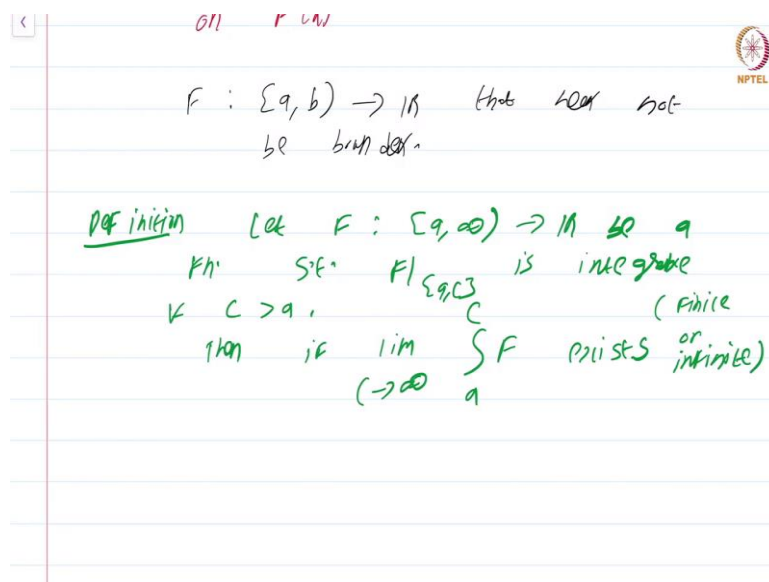 on
NPTEL
F : [a, b) → ℝ that need not
be bounded.
Definition Let F : [a, ∞) → ℝ be a
Fn. s.t. F|[a,c] is integrable
∀ c > a.
Then if lim c→∞ ∫_a^c F exists (finite or infinite)